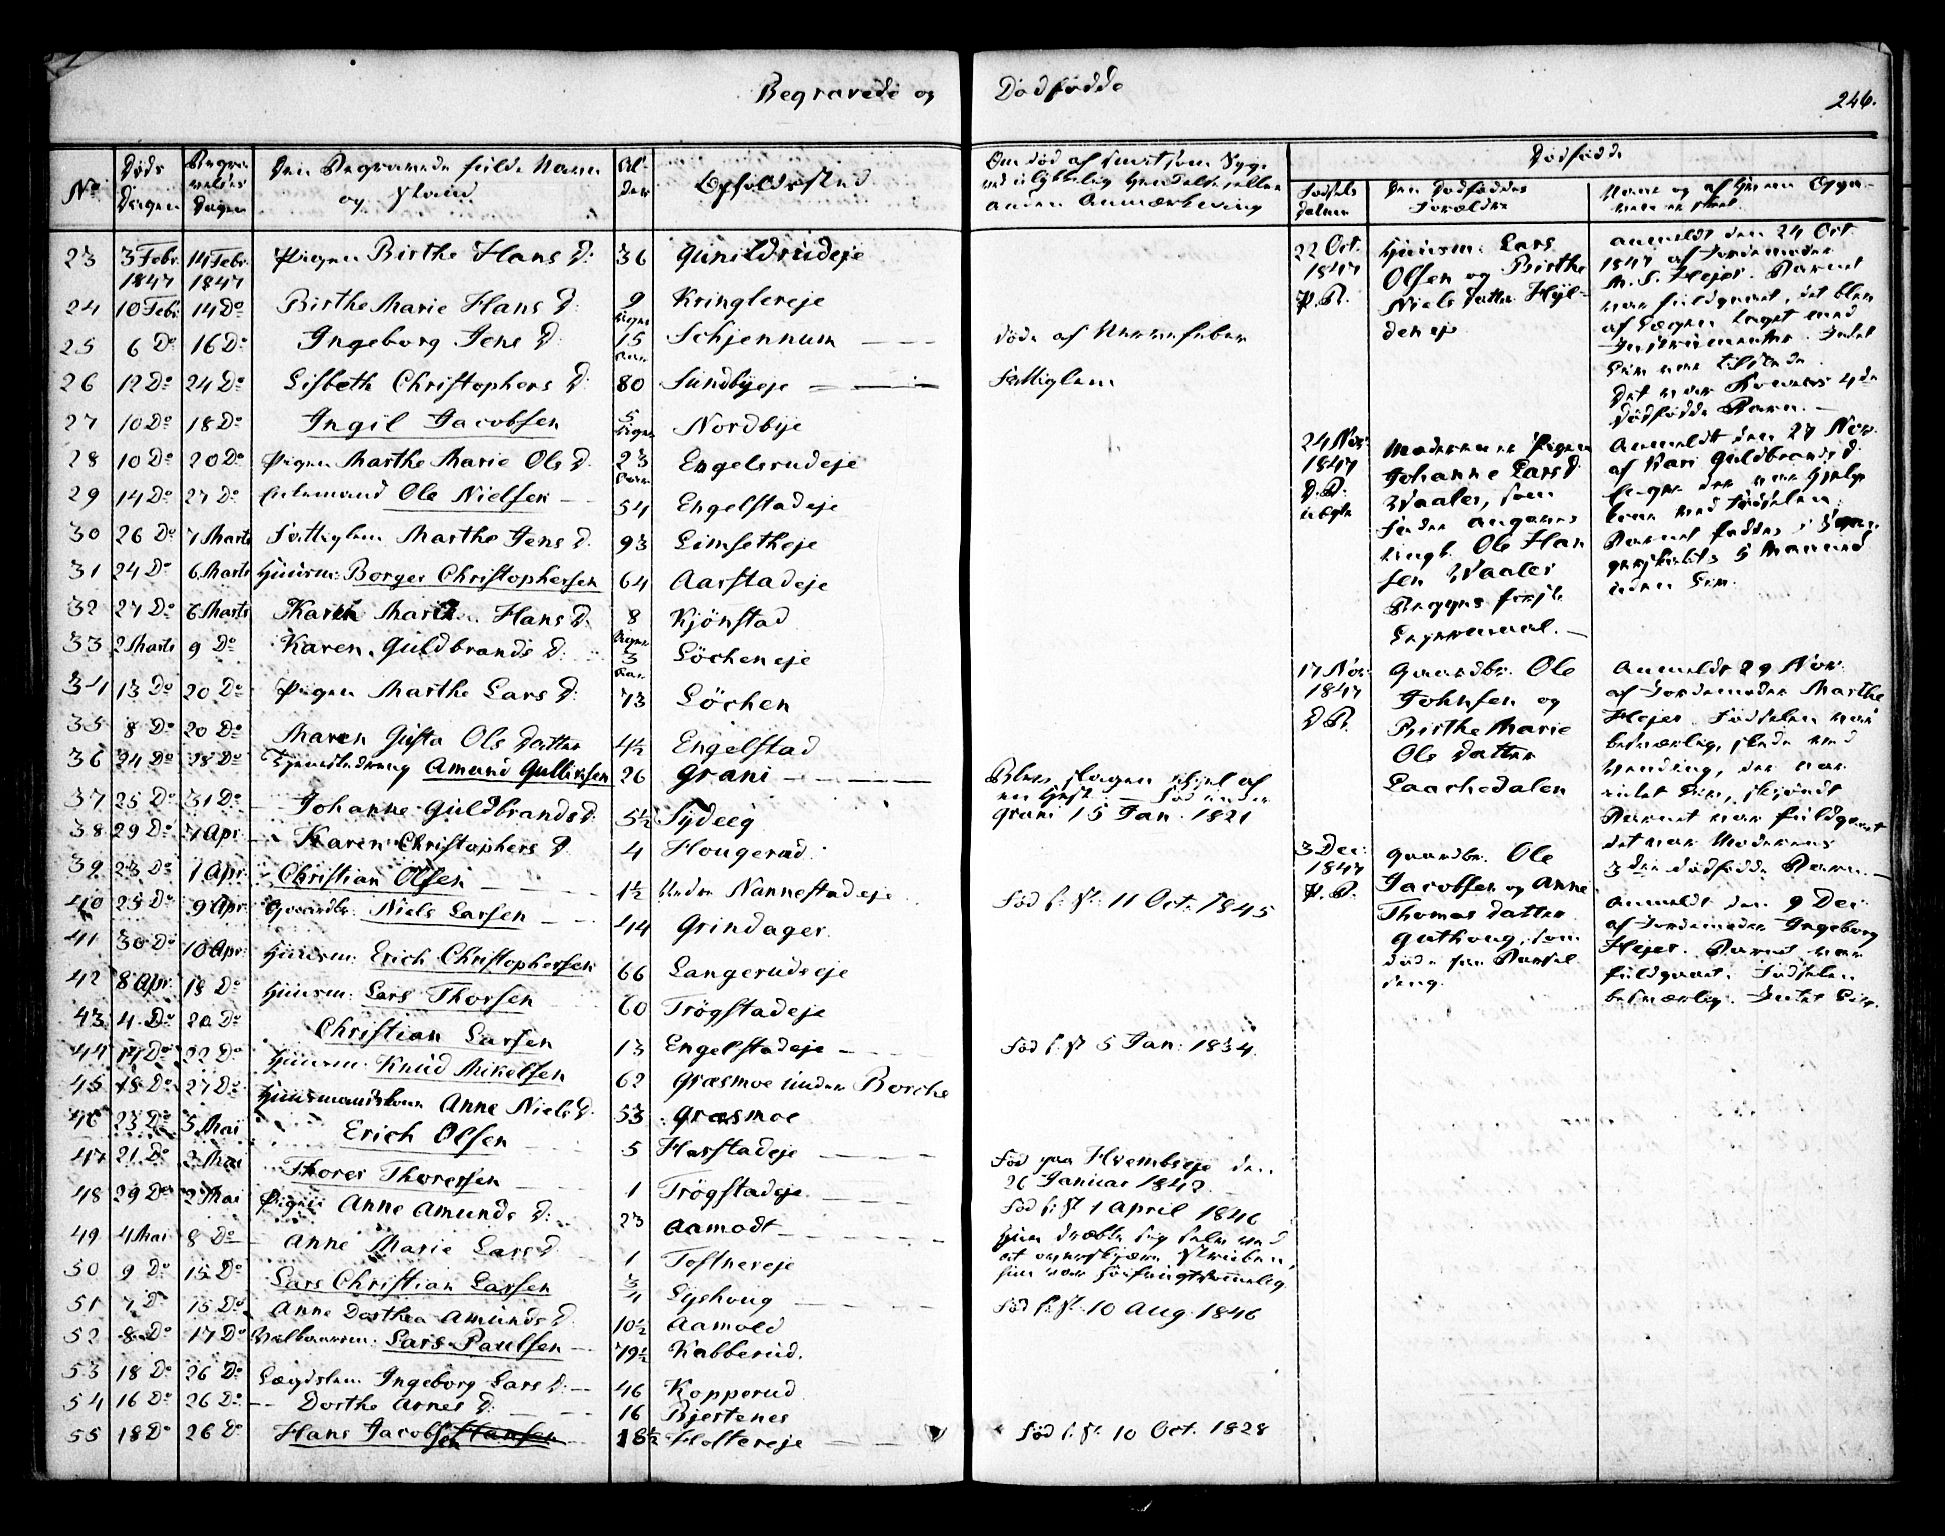 Begravede og Dödfödde
246.
No Döds Dagen Begravelses Dagen Den Begravede fulde Navn og Stand Alder Opholdssted
23 3 Febr. 1847 14 Febr. 1847 Pigen Birthe Hans D. 36 Gunildrudeje
24 10 Febr. 14 Do Birthe Marie Hans D. 9 Uger Kringlereje
25 6 Do 16 Do Ingeborg Jens D. 15 Aar Schjennum
26 12 Do 24 Do Lisbeth Christophers D. 80 Sundbyeje
27 10 Do 18 Do Ingil Jacobsen 5 Uger Nordbye
28 10 Do 20 Do Pigen Marthe Marie Ols D. 23 Aar Engelsrudeje
29 14 Do 27 Do Enkemand Ole Nielsen 54 Engelstadeje
30 26 Do 7 Marts Fattiglem Marthe Jens D. 93 Limsetheje
31 24 Do 6 Marts Huusm: Borger Christophersen 64 Aarstadeje
32 27 Do 6 Marts Karen Hans D. 8 Uger Kjönstad
33 2 Marts 9 Do Karen Guldbrands D. 3 Aar Löcheneje
34 13 Do 20 Do Pigen Marthe Lars D. 73 Löchen
35 8 Do 20 Do Maren Gusta Ols Datter 4½ Engelstad
36 24 Do 28 Do Tjenestedreng Amund Gulliksen 26 Grani
37 25 Do 31 Do Johanne Guldbrands D. 5½ Sydeeg
38 29 Do 7 Apr. Karen Christophers D. 4 Hougerud
39 23 Do 1 Apr. Christian Olsen 1½ Nedre Nannestadeje
40 25 Do 9 Apr. Gaardbr. Niels Larsen 44 Grindager
41 30 Do 10 Apr. Huusm: Erich Christophersen 66 Langerudseje
42 8 Apr. 18 Do Huusm: Lars Thorsen 60 Trögstadeje
43 4 Do 20 Do Christian Larsen 13 Engelstadeje
44 14 Do 22 Do Huusm: Knud Mikelsen 62 Græsmoe under Borche
45 18 Do 27 Do Huusmandskone Anne Niels D. 53 Græsmoe
46 23 Do 5 Mai Erich Olsen 5 Harstadeje
47 21 Do 2 Mai Thorer Thoresen 1 Trögstadeje
48 29 Do 2 Mai Pigen Anne Amunds D. 23 Aamodt
49 4 Mai 8 Do Anne Marie Lars D. 1 Toftnereje
50 9 Do 15 Do Lars Christian Larsen ¾ Lyshoug
51 7 Do 15 Do Anne Dorthea Amunds D. 10½ Aamold
52 8 Do 17 Do Lars Paulsen 79½ Kabberud.
53 18 Do 26 Do Lægdslem Ingeborg Lars D. 46 Kopperud
54 16 Do 26 Do Dorthe Arnes D. 16 Bjertenes
55 18 Do 26 Do Hans Jacobsen Hansen 18½ Holtereje
Om död af smitsom Syge
ved ulykkelig Hændelse eller
anden Anmærkning
döde af Nervefeber
Fattiglem
Blev slagen ihjel af
en Hest. – Föd under
Grani 15 Jan. 1821
föd p. St. 11 Oct. 1845
föd p. St. 5 Jan: 1834.
Föd paa Hvembseje den
26 Januar 1842
föd p. St. 1 April 1846
Hun dræbte sig selv ved
at overskjære Struben,
hun var
föd p. St. 10 Aug. 1846
föd p. St. 10 Oct. 1828
Dödfödde
Födsels datum
Den Dödföddes Forældre
Naar og af hvem
22 Oct.
1847
Huusm: Lars
Olsen og Birthe
Niels Datter Hyl-
deneje
anmeldt den 24 Oct.
1847 af Jordemoder
M. S. Hejer. Barnet
var fuldbaaret, det blev
af Lægen taget med
Instrumenter. Intet
Liv var tilstede.
Det var Konens 4de
dödfödde Barn. –
24 Nov.
1847
Moderen er Pigen
Johanne Lars D.
Waaler, som
Fader angives
Ungk. Ole Han
sen Waaler
Begges förste
Leiermaal. –
Anmeldt den 27 Nov.
af Kari Guldbrands D.
der var Hjelpe
kone ved Födselen.
Barnet föddes i Svan-
gerskabets 5 Maaned
uden Liv.
17 Nov.
1847
Gaardbr. Ole
Johnsen og
Birthe Marie
Ols Datter
Laachedalen
Anmeldt 29 Nov.
af Jordemoder Marthe
Hejer. Födselen var
besværlig, skede ved
Vending, der var
intet Liv, skjöndt
Barnet var fuldbaaret
det var Moderens
3die dödfödde Barn. –
3 Dec:
1847
Gaardbr. Ole
Jacobsen og Anne
Thomas Datter
Guthoug, som
döde paa Barsel
seng.
anmeldt den 9 Dec:
af Jordemoder Ingeborg
Hejer. Barnet var
fuldbaaret. Födselen
besværlig. Intet Liv.